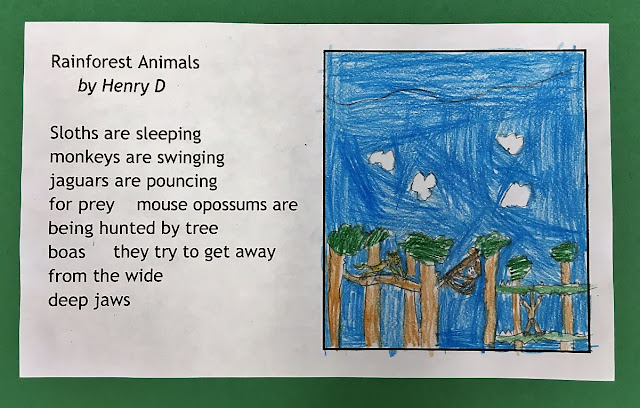 Rainforest Animals
by Henry D
Sloths are sleeping
monkeys are swinging
jaguars are pouncing
for prey mouse opossums are
being hunted by tree
boas they try to get away
from the wide
deep jaws